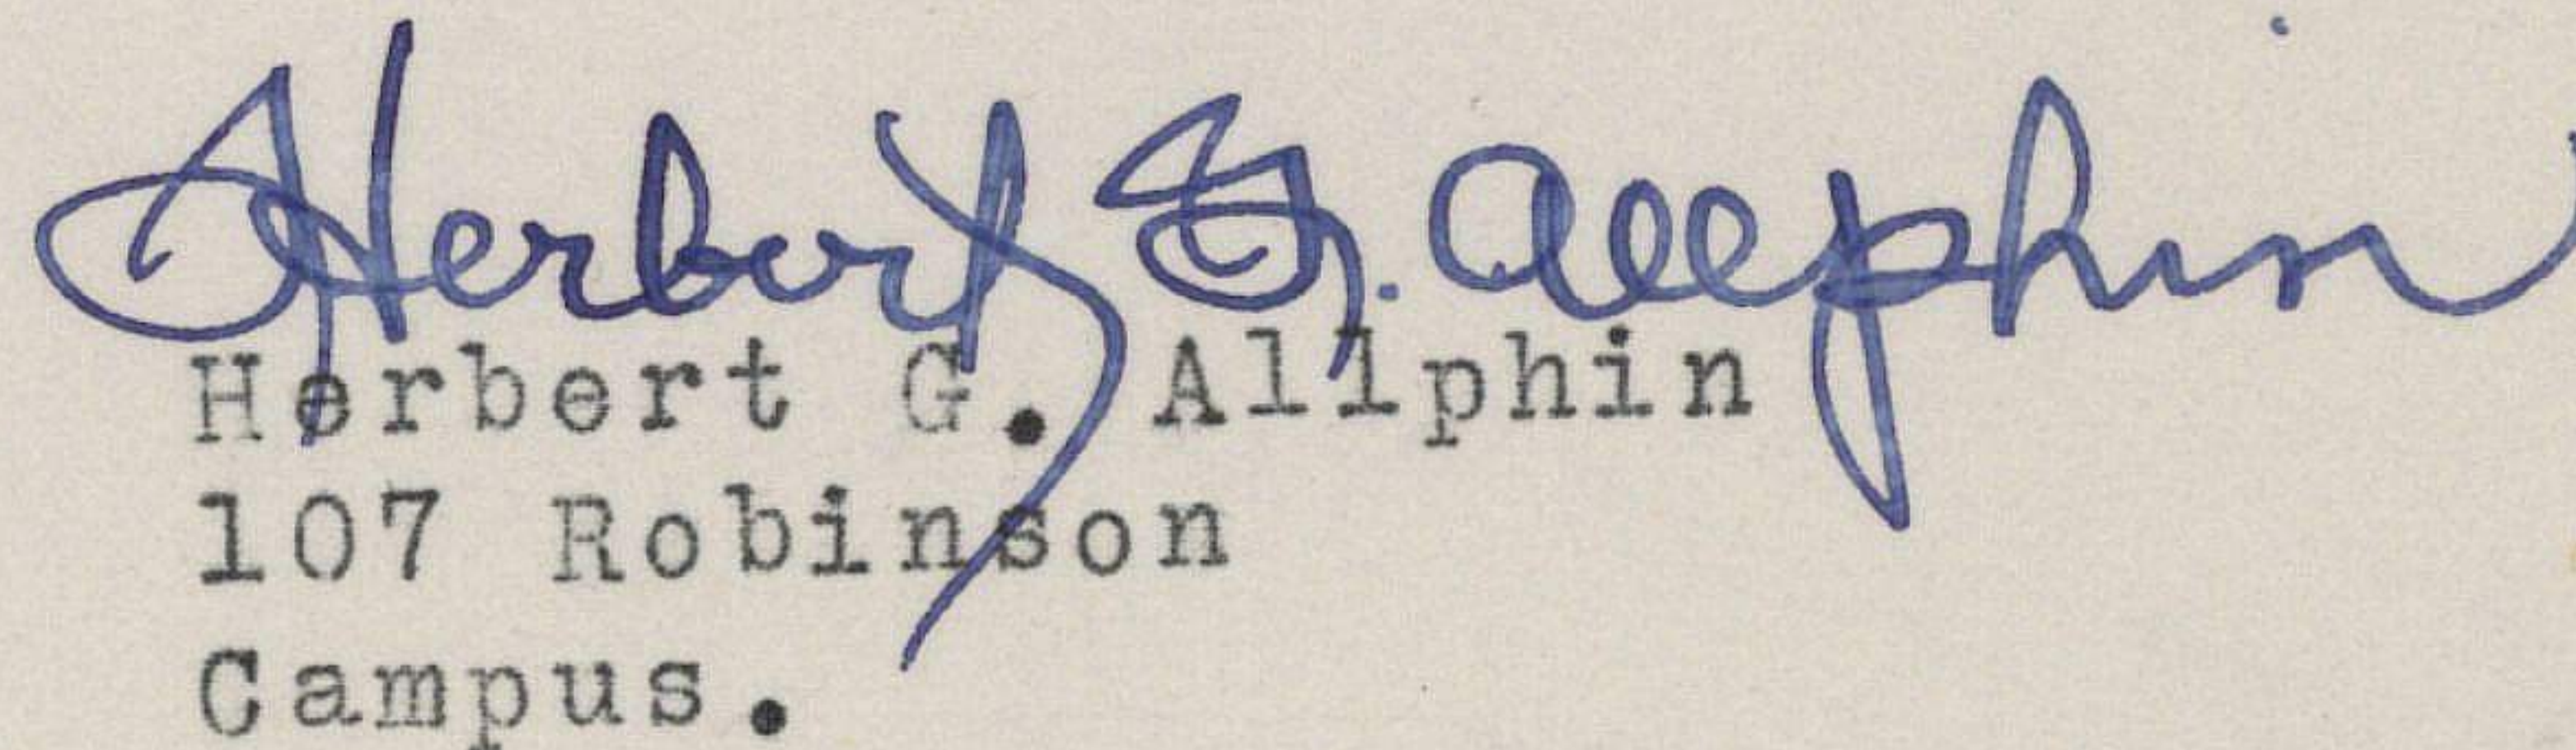 Herbert G. Allphin
Herbert G. Allphin
107 Robinson
Campus.